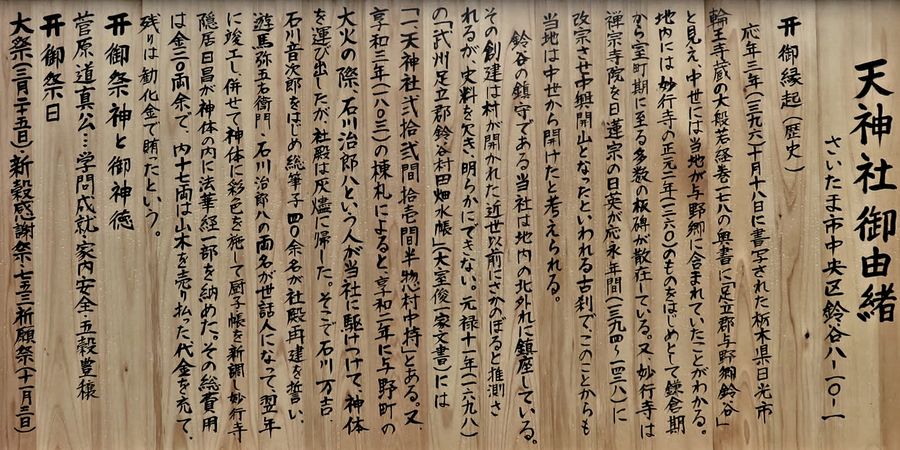 天神社御由緒
さいたま市中央区鈴谷八-一〇-一
开御縁起(歴史)
応年三年(一三九六)十月十八日に書写された栃木県日光市
輪王寺蔵の大般若経巻一七八の奥書に「足立郡与野郷鈴谷」
と見え、中世には当地が与野郷に含まれていたことがわかる。
地内には妙行寺の正元二年(一二六〇)のものをはじめとして鎌倉期
から室町期に至る多数の板碑が散在している。又、妙行寺は
禅宗寺院を日蓮宗の日英が応永年間(一三九四〜一四二八)に
改宗させ中興開山となったといわれる古刹で、このことからも
当地は中世から開けたと考えられる。
鈴谷の鎮守である当社は地内の北外れに鎮座している。
その創建は村が開かれた近世以前にさかのぼると推測さ
れるが、史料を欠き、明らかにできない。元禄十一年(一六九八)
の「武州足立郡鈴谷村田畑水帳」(大室俊一家文書)には
「一、天神社弐拾弐間拾壱間半惣村中持」とある。又
享和三年(一八〇三)の棟札によると、享和二年に与野町の
大火の際、石川治郎八という人が当社に駆けつけて、神体
を運び出したが、社殿は灰燼に帰した。そこで石川万吉、
石川音次郎をはじめ総筆子四〇余名が社殿再建を誓い、
遊馬弥五右衛門・石川治郎八の両名が世話人になって、翌年
に竣工し、併せて神体に彩色を施して厨子帳を新調し妙行寺
隠居日昌が神体の内に法華経一部を納めた。その総費用
は金二〇両余で、内十七両は山木を売り払った代金を充て、
残りは勧化金で賄ったという。
开御祭神と御神徳
菅原道真公…学問成就家内安全、五穀豊穣
开御祭日
大祭(三月二十五日)・新穀感謝祭・七五三祈願祭(十一月二三日)